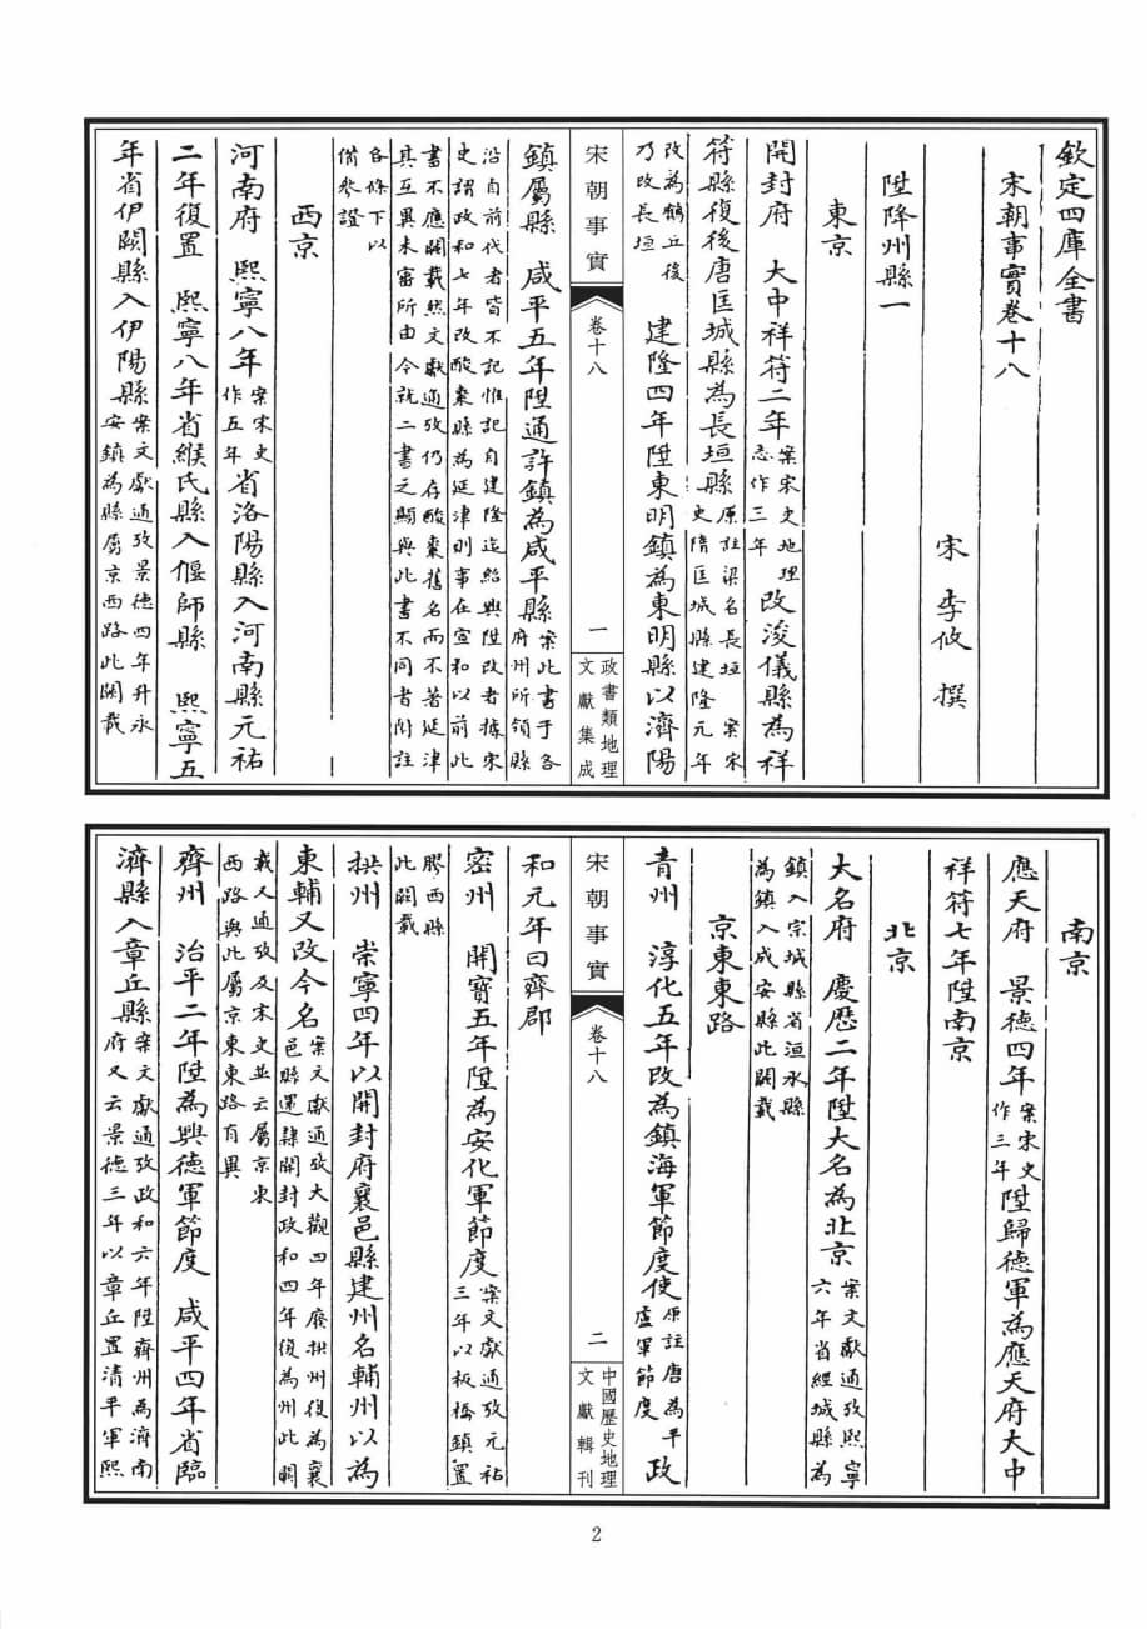 欽定四庫全書
宋朝事實卷十八
宋 李攸 撰
陞降州縣一
東京
開封府 大中祥符二年案宋史地理志作三年改浚儀縣為祥
符縣復後唐匡城縣為長垣縣原註梁名長垣 案宋史隋匡城縣建隆元年
改為鶴丘後乃改長垣 建隆四年陞東明鎮為東明縣以濟陽
宋朝事實 卷十八 一 政書類地理文獻集成
鎮屬縣 咸平五年陞通許鎮為咸平縣案此書于各府州所領縣
沿自前代者皆不記惟記自建隆迄紹興陞改者據宋史謂政和七年改酸棗縣為延津則事在宣和以前此
書不應闕載然文獻通攷仍存酸棗舊名而不著延津其互異未審所由今就二書之顯與此書不同者附註
各條下以備參證
西京
河南府 熙寧八年案宋史作五年省洛陽縣入河南縣元祐
二年復置 熙寧八年省緱氏縣入偃師縣 熙寧五
年省伊闕縣入伊陽縣案文獻通攷景德四年升永安鎮為縣屬京西路此闕載
南京
應天府 景德四年案宋史作三年陞歸德軍為應天府大中
祥符七年陞南京
北京
大名府 慶歷二年陞大名為北京案文獻通攷熙寧六年省經城縣為
鎮入宗城縣省洹水縣為鎮入成安縣此闕載
京東東路
青州 淳化五年改為鎮海軍節度使原註唐為平盧軍節度 政
宋朝事實 卷十八 二 中國歷史地理文獻輯刊
和元年曰齊郡
密州 開寶五年陞為安化軍節度案文獻通攷元祐三年以板橋鎮置
膠西縣此闕載
拱州 崇寧四年以開封府襄邑縣建州名輔州以為
東輔又改今名案文獻通攷大觀四年廢拱州復為襄邑縣還隸開封政和四年復為州此闕
載又通攷及宋史並云屬京東西路與此屬京東東路有異
齊州 治平二年陞為興德軍節度 咸平四年省臨
濟縣入章丘縣案文獻通攷政和六年陞齊州為濟南府又云景德三年以章丘置清平軍熙
2